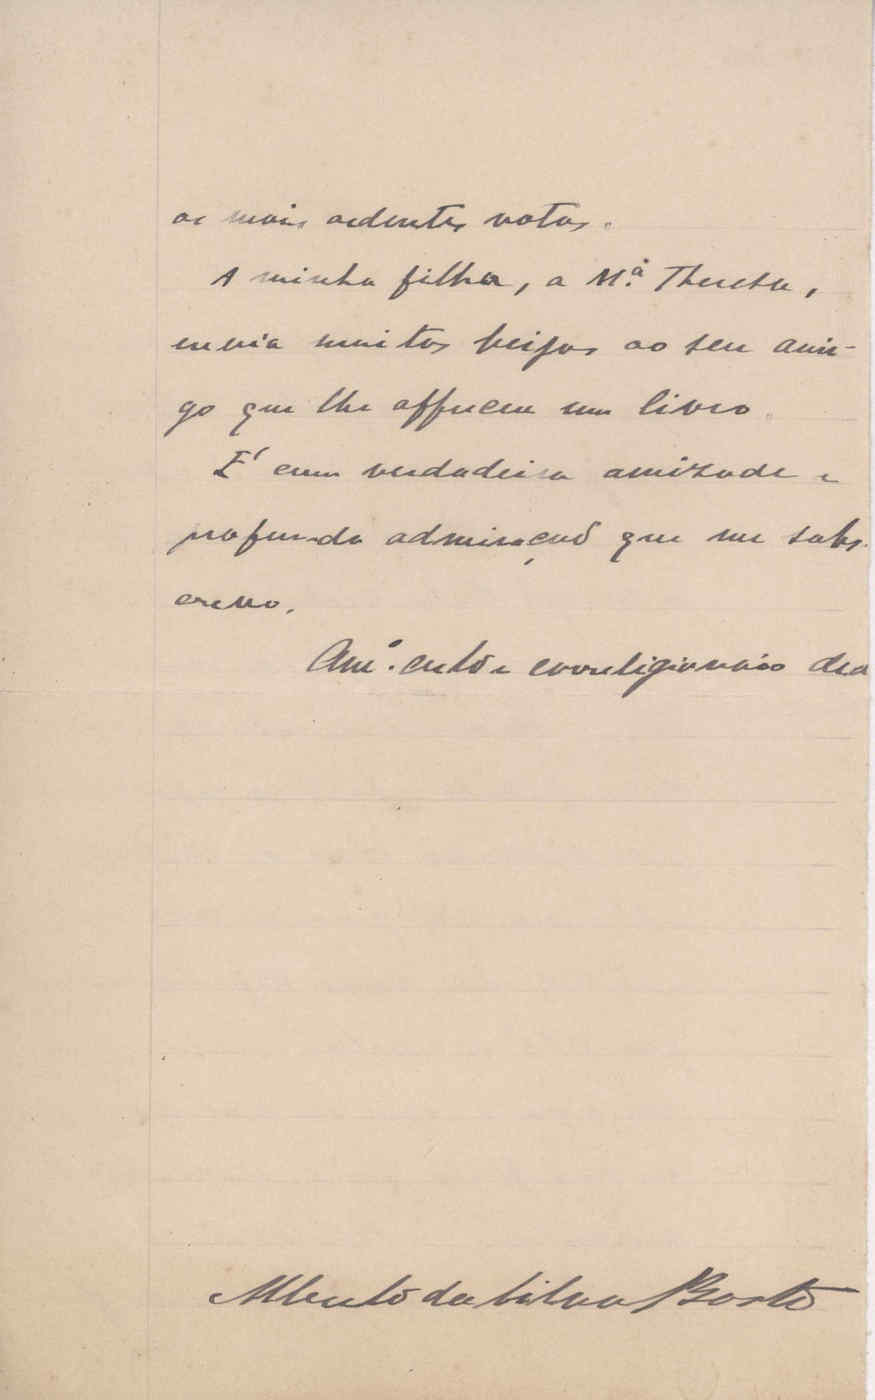 os mais ardentes votos.
A minha filha, a M.ª Thereza,
envia muitos beijos ao seu ami-
go que lhe offereceu um livro.
E' com verdadeira amizade e
profunda admiração que me subs-
crevo.
Am.º certo e correligionario
Alberto da Silva Basto